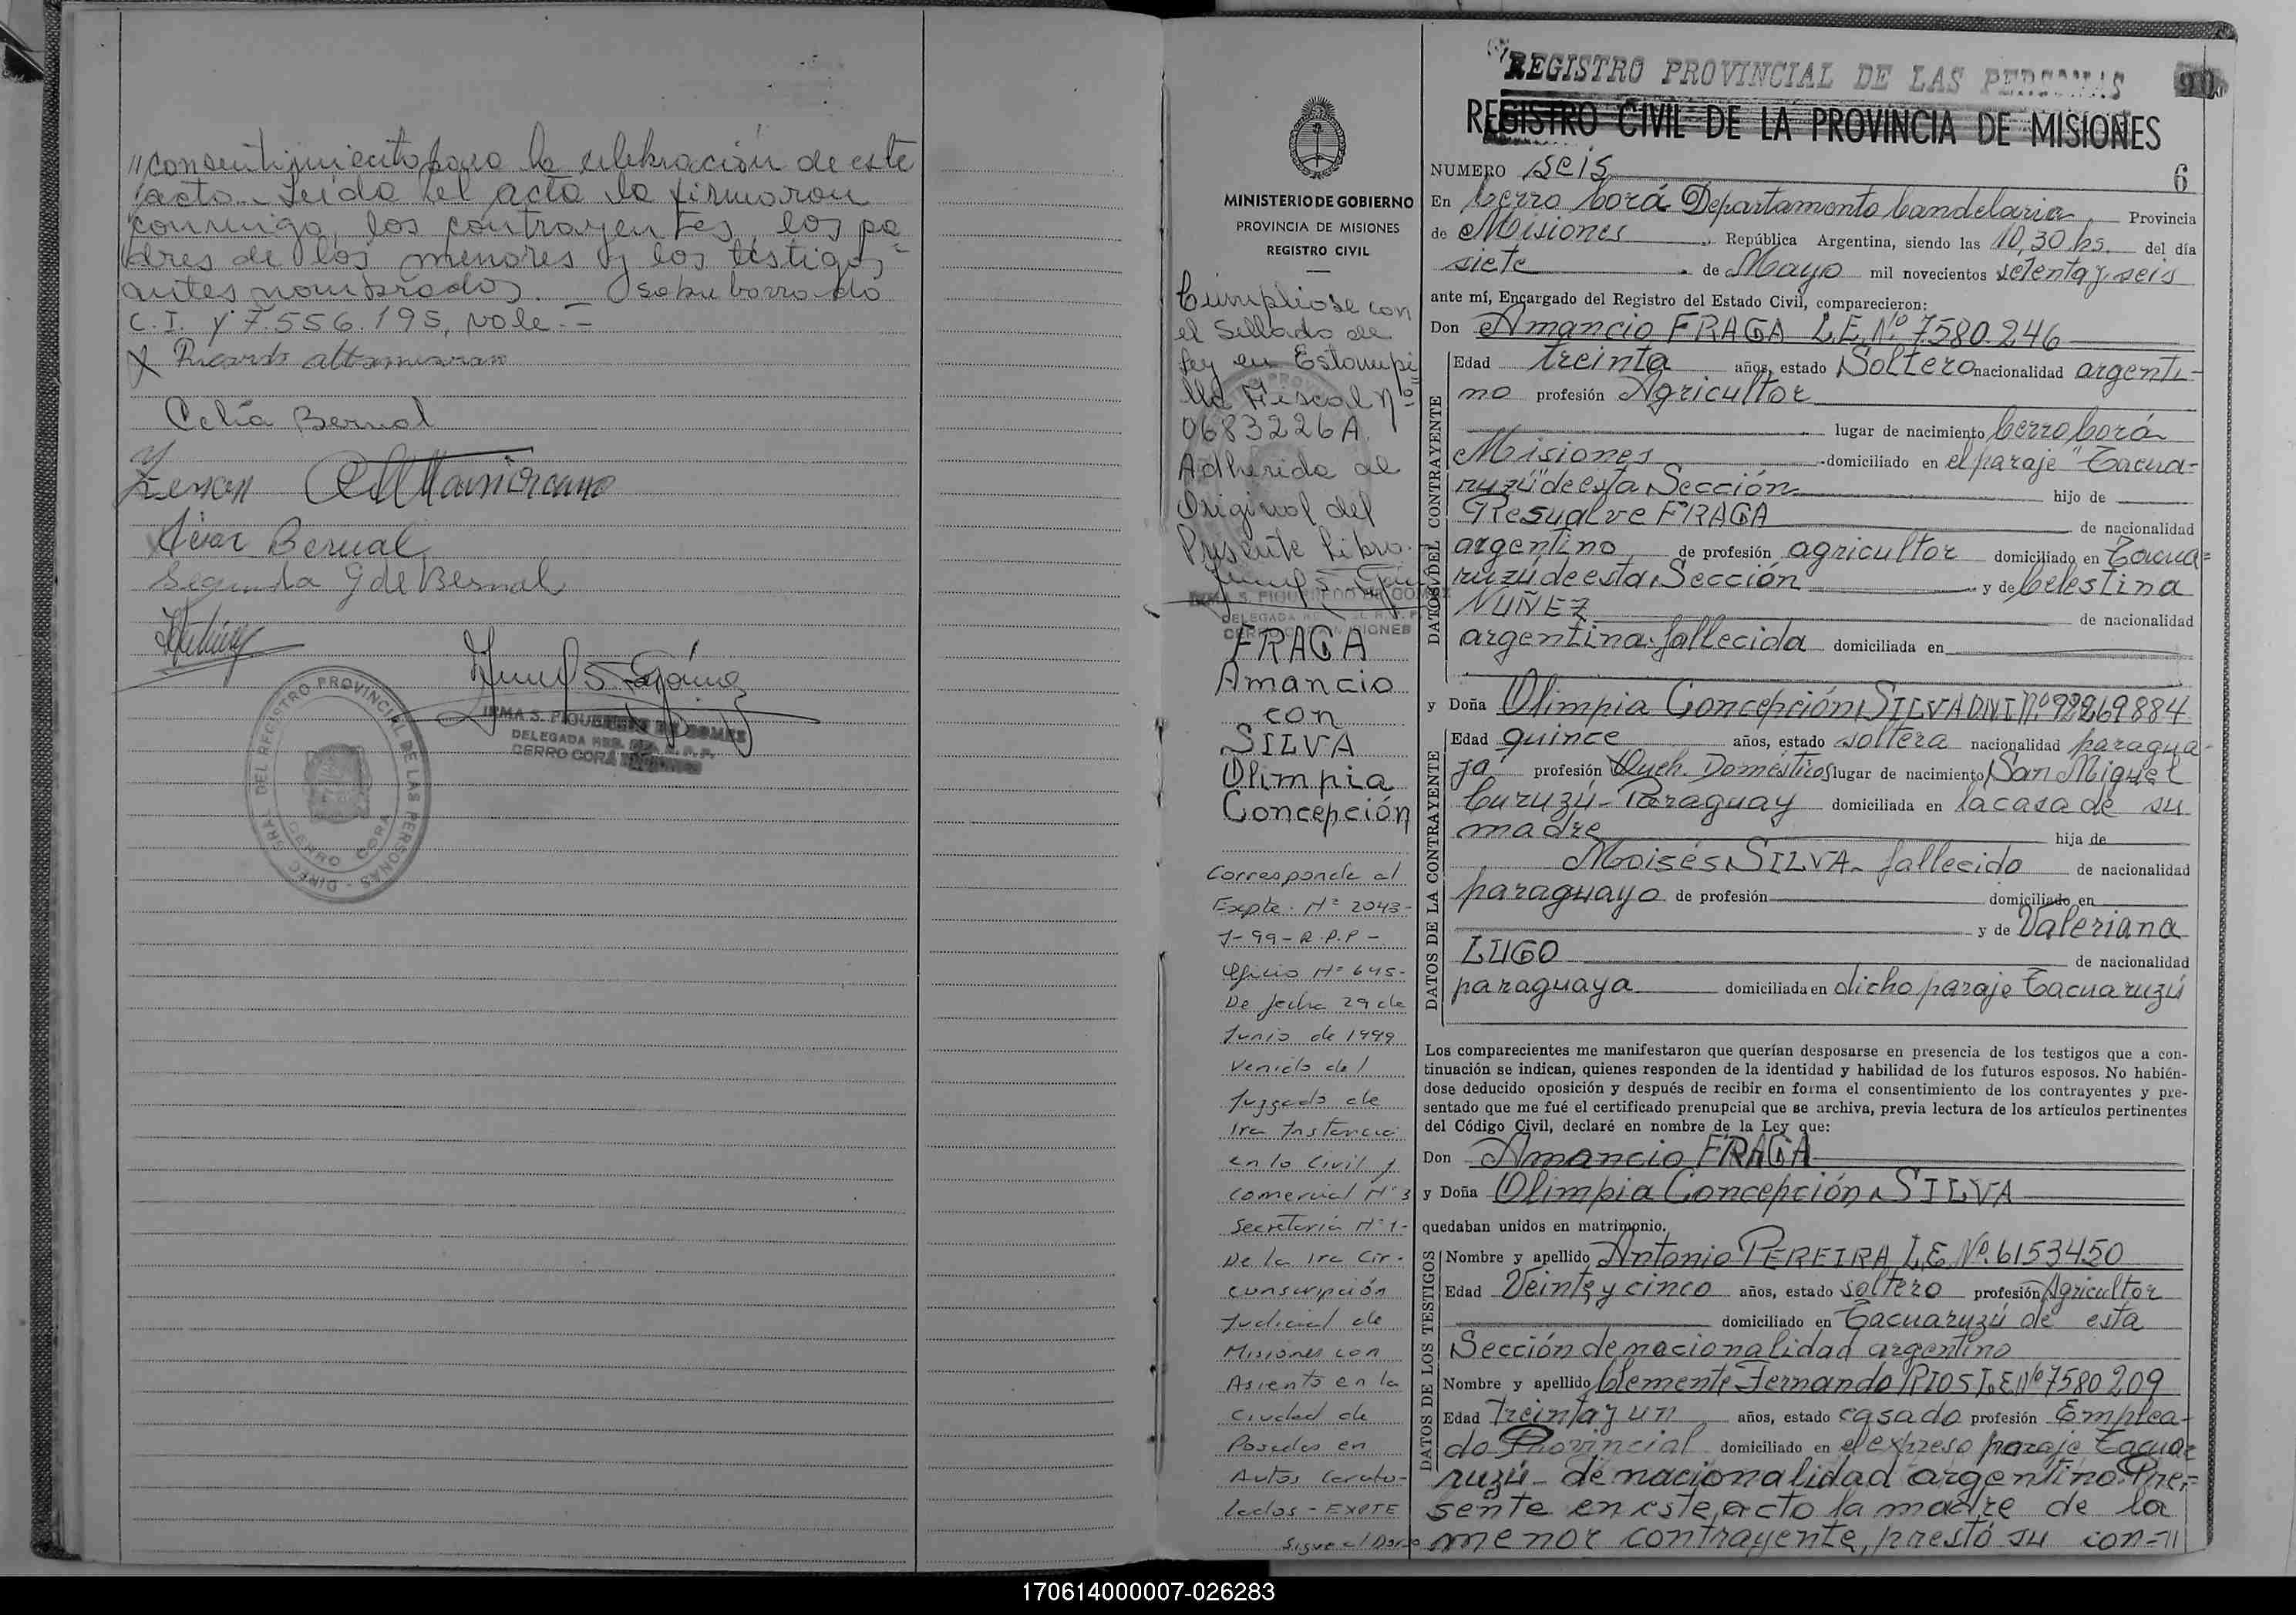 "consentimiento para la celebración de este
acto.- Leida el acta la firmaron
conmigo, los contrayentes, los pa
dres de los menores y los testigos
antes nombrados. - Sobre borrado
C.I. y 7.556.195, vale.-
Ricardo Altamirano
Celia Bernal
Zenon Altamirano
Bernal
Segunda G de Bernal
IRMA S. FIGUEREDO DE GOMEZ
DELEGADA
CERRO CORÁ
DIREC. GRAL. DEL REGISTRO PROVINCIAL DE LAS PERSONAS
CERRO CORA
REGISTRO PROVINCIAL DE LAS PERSONAS
90
REGISTRO CIVIL DE LA PROVINCIA DE MISIONES
MINISTERIO DE GOBIERNO
PROVINCIA DE MISIONES
REGISTRO CIVIL
Cumpliose con
el Sellado de
Ley en Estampi
lla Fiscal Nº
0683226A.
Adherida al
Original del
Presente Libro.
IRMA S. FIGUEREDO DE GOMEZ
FRAGA
Amancio
con
SILVA
Olimpia
Concepción
Corresponde al
Expte. Nº 2043-
J-99-R.P.P-
Oficio Nº 645-
De fecha 29 de
Junio de 1999
Venido del
Juzgado de
1ra Instancia
en lo Civil y
Comercial Nº 3
Secretaria Nº 1-
De la 1ra Cir-
cunscripción
Judicial de
Misiones con
Asiento en la
Ciudad de
Posadas en
Autos Caratu-
lados - EXPTE
Sigue al Dorso
NUMERO seis 6
En Cerro Corá Departamento Candelaria, Provincia
de Misiones, República Argentina, siendo las 10,30 hs. del día
siete de Mayo mil novecientos setenta y seis
ante mí, Encargado del Registro del Estado Civil, comparecieron:
Don Amancio FRAGA L.E.Nº 7580.246
DATOS DEL CONTRAYENTE
Edad treinta años, estado Soltero nacionalidad argenti-
no profesión Agricultor
lugar de nacimiento Cerro Corá
Misiones domiciliado en el paraje "Tacua-
ruzú" de esta Sección hijo de
Resualve FRAGA de nacionalidad
argentino de profesión agricultor domiciliado en Tacua=
ruzú de esta Sección y de Celestina
NUÑEZ de nacionalidad
argentina-fallecida domiciliada en
y Doña Olimpia Concepción SILVA DNI Nº 92269884
DATOS DE LA CONTRAYENTE
Edad quince años, estado soltera nacionalidad paragua-
ya profesión Queh. Domésticos lugar de nacimiento San Miguel
Curuzú - Paraguay domiciliada en la casa de su
madre hija de
Moisés SILVA- fallecido de nacionalidad
paraguayo de profesión domiciliado en
y de Valeriana
LUGO de nacionalidad
paraguaya domiciliada en dicho paraje Tacuaruzú
Los comparecientes me manifestaron que querían desposarse en presencia de los testigos que a con-
tinuación se indican, quienes responden de la identidad y habilidad de los futuros esposos. No habién-
dose deducido oposición y después de recibir en forma el consentimiento de los contrayentes y pre-
sentado que me fué el certificado prenupcial que se archiva, previa lectura de los artículos pertinentes
del Código Civil, declaré en nombre de la Ley que:
Don Amancio FRAGA
y Doña Olimpia Concepción SILVA
quedaban unidos en matrimonio.
DATOS DE LOS TESTIGOS
Nombre y apellido Antonio PEREIRA L.E Nº. 6153450
Edad Veinte y cinco años, estado soltero profesión Agricultor
domiciliado en Tacuaruzú de esta
Sección de nacionalidad argentino
Nombre y apellido Clemente Fernando RIOS L.E.Nº 7580209
Edad treinta y un años, estado casado profesión Emplea-
do Provincial domiciliado en el expreso paraje Tacua=
ruzú - de nacionalidad argentino. Pre=
sente en este acto la madre de la
menor contrayente, prestó su con-//
170614000007-026283